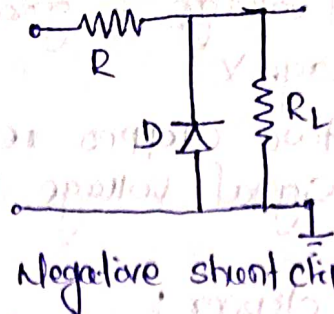 R
D
RL
Negative shunt cli